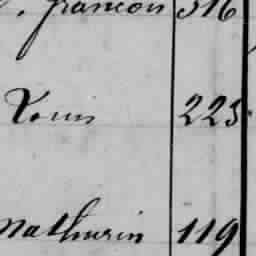 françois 316
Louis 225
Mathurin 119